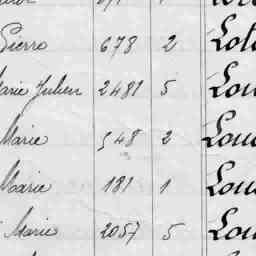 Pierre 678 2
Marie Julien 2481 5 Lou
Marie 548 2 Lou
Marie 181 1 Lou
Marie 2057 5 Lou